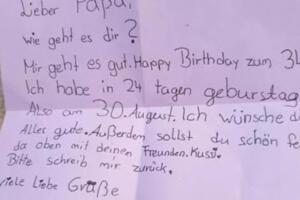 Lieber Papa,
wie geht es dir?
Mir geht es gut. Happy Birthday zum 34
Ich habe in 24 tagen geburstag
Also am 30. August. Ich wünsche d
Alles gute. Außerden sollst du schön fe
da oben mit deinen Freunden. Kussi.
Bitte schreib mir zurück.
viele Liebe Grüße